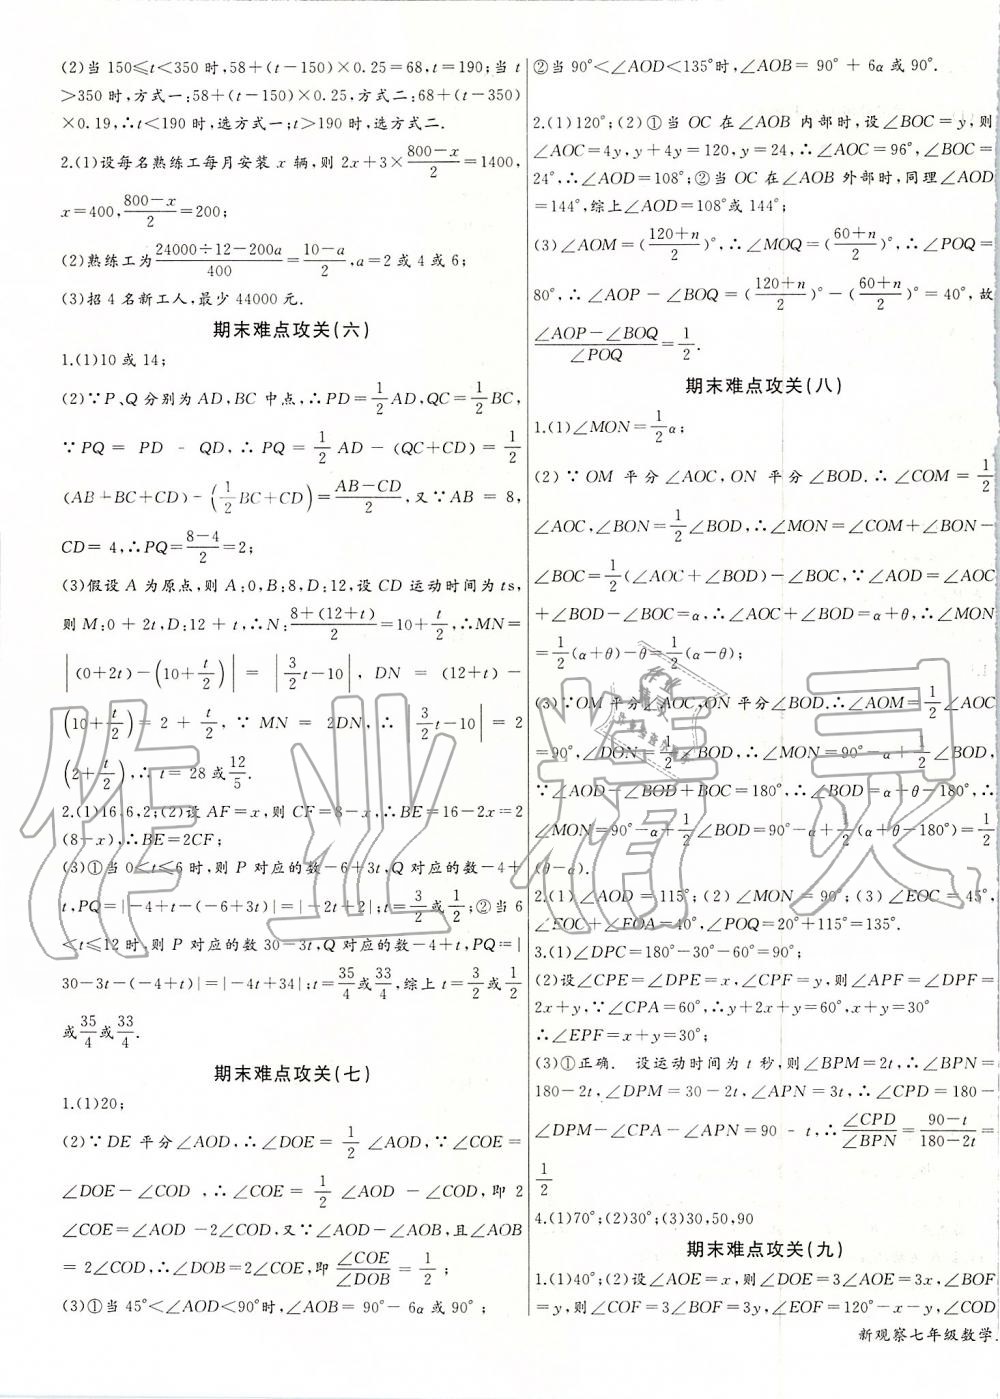 (2)当 150≤t<350 时,58+(t-150)×0.25=68,t=190;当 t
>350 时,方式一:58+(t-150)×0.25,方式二:68+(t-350)
×0.19,∴t<190 时,选方式一;t>190 时,选方式二.
2.(1)设每名熟练工每月安装 x 辆,则 2x+3×(800-x)/2=1400,
x=400,(800-x)/2=200;
(2)熟练工为(24000÷12-200a)/400=(10-a)/2,a=2 或 4 或 6;
(3)招 4 名新工人,最少 44000 元.
期末难点攻关(六)
1.(1)10 或 14;
(2)∵P、Q 分别为 AD,BC 中点,∴PD=1/2AD,QC=1/2BC,
∵PQ = PD - QD,∴PQ = 1/2 AD-(QC+CD)=1/2
(AB+BC+CD)-(1/2BC+CD)=(AB-CD)/2,又∵AB = 8,
CD= 4,∴PQ=(8-4)/2=2;
(3)假设 A 为原点,则 A:0,B:8,D:12,设 CD 运动时间为 ts,
则 M:0+2t,D:12+t,∴N:(8+(12+t))/2=10+t/2,∴MN=
|(0+2t)-(10+t/2)| = |3/2t-10|, DN = (12+t)-
(10+t/2)= 2 + t/2, ∵ MN = 2DN, ∴ |3/2t-10| = 2
(2+t/2),∴ t= 28 或12/5.
2.(1)16,6,2;(2)设 AF=x,则 CF=8-x,∴BE=16-2x=2
(8-x),∴BE=2CF;
(3)①当 0<t≤6 时,则 P 对应的数-6+3t,Q 对应的数-4+
t,PQ=|-4+t-(-6+3t)|=|-2t+2|;t=3/2或1/2;②当 6
<t≤12 时,则 P 对应的数 30-3t,Q 对应的数-4+t,PQ=|
30-3t-(-4+t)|=|-4t+34|;t=35/4或33/4,综上 t=3/2或1/2
或35/4或33/4.
期末难点攻关(七)
1.(1)20;
(2)∵DE 平分∠AOD,∴∠DOE= 1/2 ∠AOD,∵∠COE=
∠DOE-∠COD,∴∠COE= 1/2 ∠AOD -∠COD,即 2
∠COE=∠AOD-2∠COD,又∵∠AOD-∠AOB,且∠AOB
= 2∠COD,∴∠DOB=2∠COE,即∠COE/∠DOB= 1/2;
(3)①当 45°<∠AOD<90°时,∠AOB= 90°- 6α 或 90°;
②当 90°<∠AOD<135°时,∠AOB= 90° + 6α 或 90°.
2.(1)120°;(2)①当 OC 在∠AOB 内部时,设∠BOC=y,则
∠AOC=4y,y+4y=120,y=24,∴∠AOC=96°,∠BOC=
24°,∴∠AOD=108°;②当 OC 在∠AOB 外部时,同理∠AOD
=144°,综上∠AOD=108°或 144°;
(3)∠AOM=((120+n)/2)°,∴∠MOQ=((60+n)/2)°,∴∠POQ=
80°,∴∠AOP-∠BOQ=((120+n)/2)°-((60+n)/2)°=40°,故
(∠AOP-∠BOQ)/∠POQ=1/2.
期末难点攻关(八)
1.(1)∠MON=1/2α;
(2)∵OM 平分∠AOC,ON 平分∠BOD.∴∠COM=1/2
∠AOC,∠BON=1/2∠BOD,∴∠MON=∠COM+∠BON-
∠BOC=1/2(∠AOC+∠BOD)-∠BOC,∵∠AOD=∠AOC
+∠BOD-∠BOC=α,∴∠AOC+∠BOD=α+θ,∴∠MON
=1/2(α+θ)-θ=1/2(α-θ);
(3)∵OM 平分∠AOC,ON 平分∠BOD.∴∠AOM=1/2∠AOC
=90°,∠DON=1/2∠BOD,∴∠MON=90°-α+1/2∠BOD,
∵∠AOD-∠BOD+BOC=180°,∴∠BOD=α+θ-180°,∴
∠MON=90°-α+1/2∠BOD=90°-α+1/2(α+θ-180°)=1/2
(θ-α).
2.(1)∠AOD=115°;(2)∠MON=90°;(3)∠EOC=45°,
∠EOC+∠EOA=40°,∠POQ=20°+115°=135°.
3.(1)∠DPC=180°-30°-60°=90°;
(2)设∠CPE=∠DPE=x,∠CPF=y,则∠APF=∠DPF=
2x+y,∵∠CPA=60°,∴y+2x+y=60°,x+y=30°
∴∠EPF=x+y=30°;
(3)①正确. 设运动时间为 t 秒,则∠BPM=2t,∴∠BPN=
180-2t,∠DPM=30-2t,∠APN=3t,∴∠CPD=180-
∠DPM-∠CPA-∠APN=90 - t,∴∠CPD/∠BPN=(90-t)/(180-2t)=
1/2
4.(1)70°;(2)30°;(3)30,50,90
期末难点攻关(九)
1.(1)40°;(2)设∠AOE=x,则∠DOE=3∠AOE=3x,∠BOF
=y,则∠COF=3∠BOF=3y,∠EOF=120°-x-y,∠COD
新观察七年级数学.
作业精灵